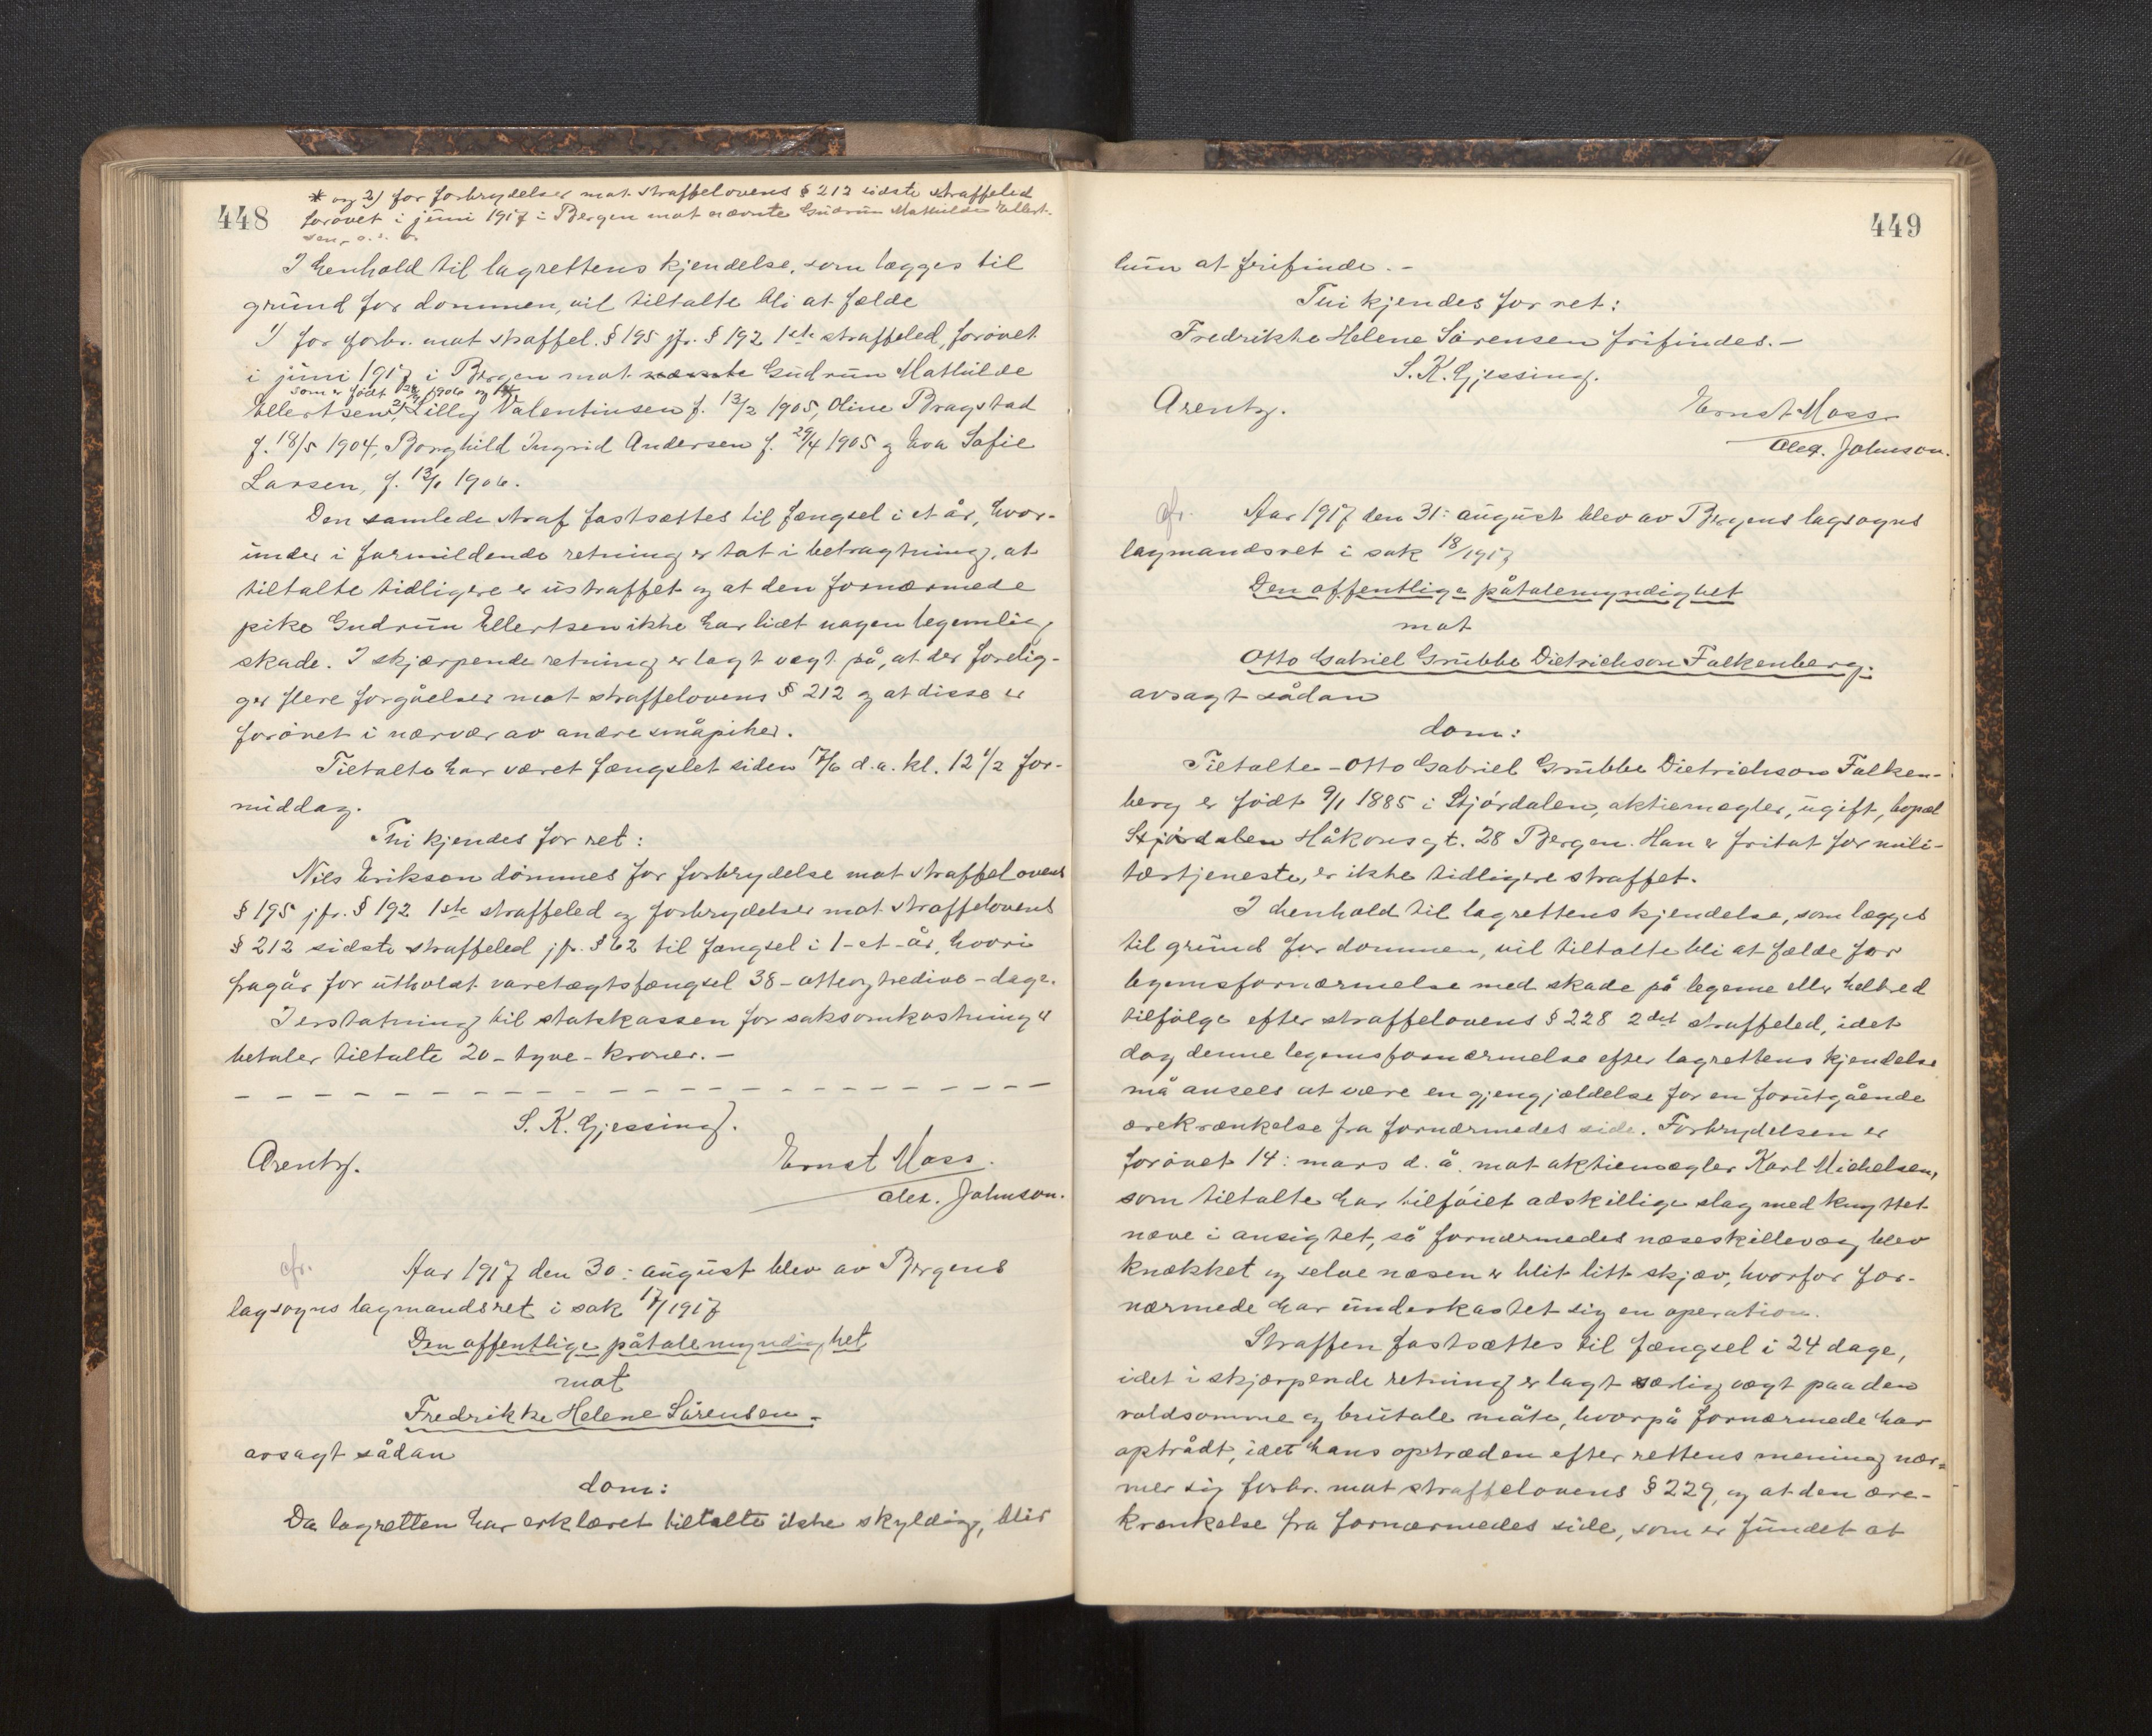 448
* og 3) for forbrydelser mot straffelovens § 212 sidste straffeled
forøvet i juni 1917 i Bergen mot nævnte Gudrun Mathilde Ellert-
sen,
I henhold til lagrettens kjendelse, som lægges til
grund for dommen, vil tiltalte bli at fælde
1) for forbr. mot straffel. § 195 jfr. § 192 1ste straffeled, forøvet
i juni 1917 i Bergen mot nævnte Gudrun Mathilde
som er født 1906 og
Ellertsen, Lilly Valentinsen f. 13/2 1905, Oline Bragstad
f. 18/5 1904, Borghild Ingrid Andersen f. 29/4 1905 og Eva Sofie
Larsen, f. 13/1 1906.
Den samlede straf fastsættes til fængsel i et år, hvor-
under i formildende retning er tat i betragtning, at
tiltalte tidligere er ustraffet og at den fornærmede
pike Gudrun Ellertsen ikke har lidt nogen legemlig
skade. I skjærpende retning er lagt vegt på, at der forelig-
ger flere forgåelser mot straffelovens § 212 og at disse er
forøvet i nærvær av andre småpiker.
Tiltalte har været fængslet siden 17/6 d.a. kl. 12 1/2 for-
middag.
Thi kjendes for ret:
Nils Erikson dømmes for forbrydelse mot straffelovens
§ 195 jfr. § 192 1ste straffeled og forbrydelser mot straffelovens
§ 212 sidste straffeled jfr. § 62 til fængsel i 1 - et - år, hvori
fragår for utholdt varetægtsfængsel 38 - otteogtredive - dage.
I erstatning til statskassen for saksomkostninger
betaler tiltalte 20 - tyve - kroner. -
S. K. Gjessing.
Arentz. Ernst Moss.
Alex. Johnson.
cfr. Aar 1917 den 30: august blev av Bergens
lagsogns lagmandsret i sak 17/1917
Den offentlige påtalemyndighet
mot
Fredrikke Helene Sørensen.
avsagt sådan
dom:
Da lagretten har erklæret tiltalte ikke skyldig, blir
449
hun at frifinde. -
Thi kjendes for ret:
Fredrikke Helene Sørensen frifindes. -
S. K. Gjessing.
Arentz. Ernst Moss
Alex. Johnson.
cfr. Aar 1917 den 31: august blev av Bergens lagsogns
lagmandsret i sak 18/1917
Den offentlige påtalemyndighet
mot
Otto Gabriel Grubbe Dietrichson Falkenberg.
avsagt sådan
dom:
Tiltalte - Otto Gabriel Grubbe Dietrichson Falken-
berg er født 9/1 1885 i Stjørdalen, aktiemægler, ugift, bopæl
Stjørdalen Håkonsgt. 28 Bergen. Han er fritat for mili-
tærtjeneste, er ikke tidligere straffet.
I henhold til lagrettens kjendelse, som lægges
til grund for dommen, vil tiltalte bli at fælde for
legemsfornærmelse med skade på legeme eller helbred
tilfølge efter straffelovens § 228 2det straffeled, idet
dog denne legemsfornærmelse efter lagrettens kjendelse
må ansees at være en gjengjældelse for en forutgående
ærekrænkelse fra fornærmedes side. Forbrydelsen er
forøvet 14: mars d. å. mot aktiemægler Karl Michelsen,
som tiltalte har tilføiet adskillige slag med knyttet
næve i ansigtet, så fornærmedes næseskillevæg blev
knækket og selve næsen er blit litt skjæv, hvorfor for-
nærmede har underkastet sig en operation.
Straffen fastsættes til fængsel i 24 dage,
idet i skjærpende retning er lagt særlig vegt paa den
voldsomme og brutale måte, hvorpå fornærmede har
optrådt, idet hans optræden efter rettens mening nær-
mer sig forbr. mot straffelovens § 229, og at den ære-
krænkelse fra fornærmedes side, som er fundet at